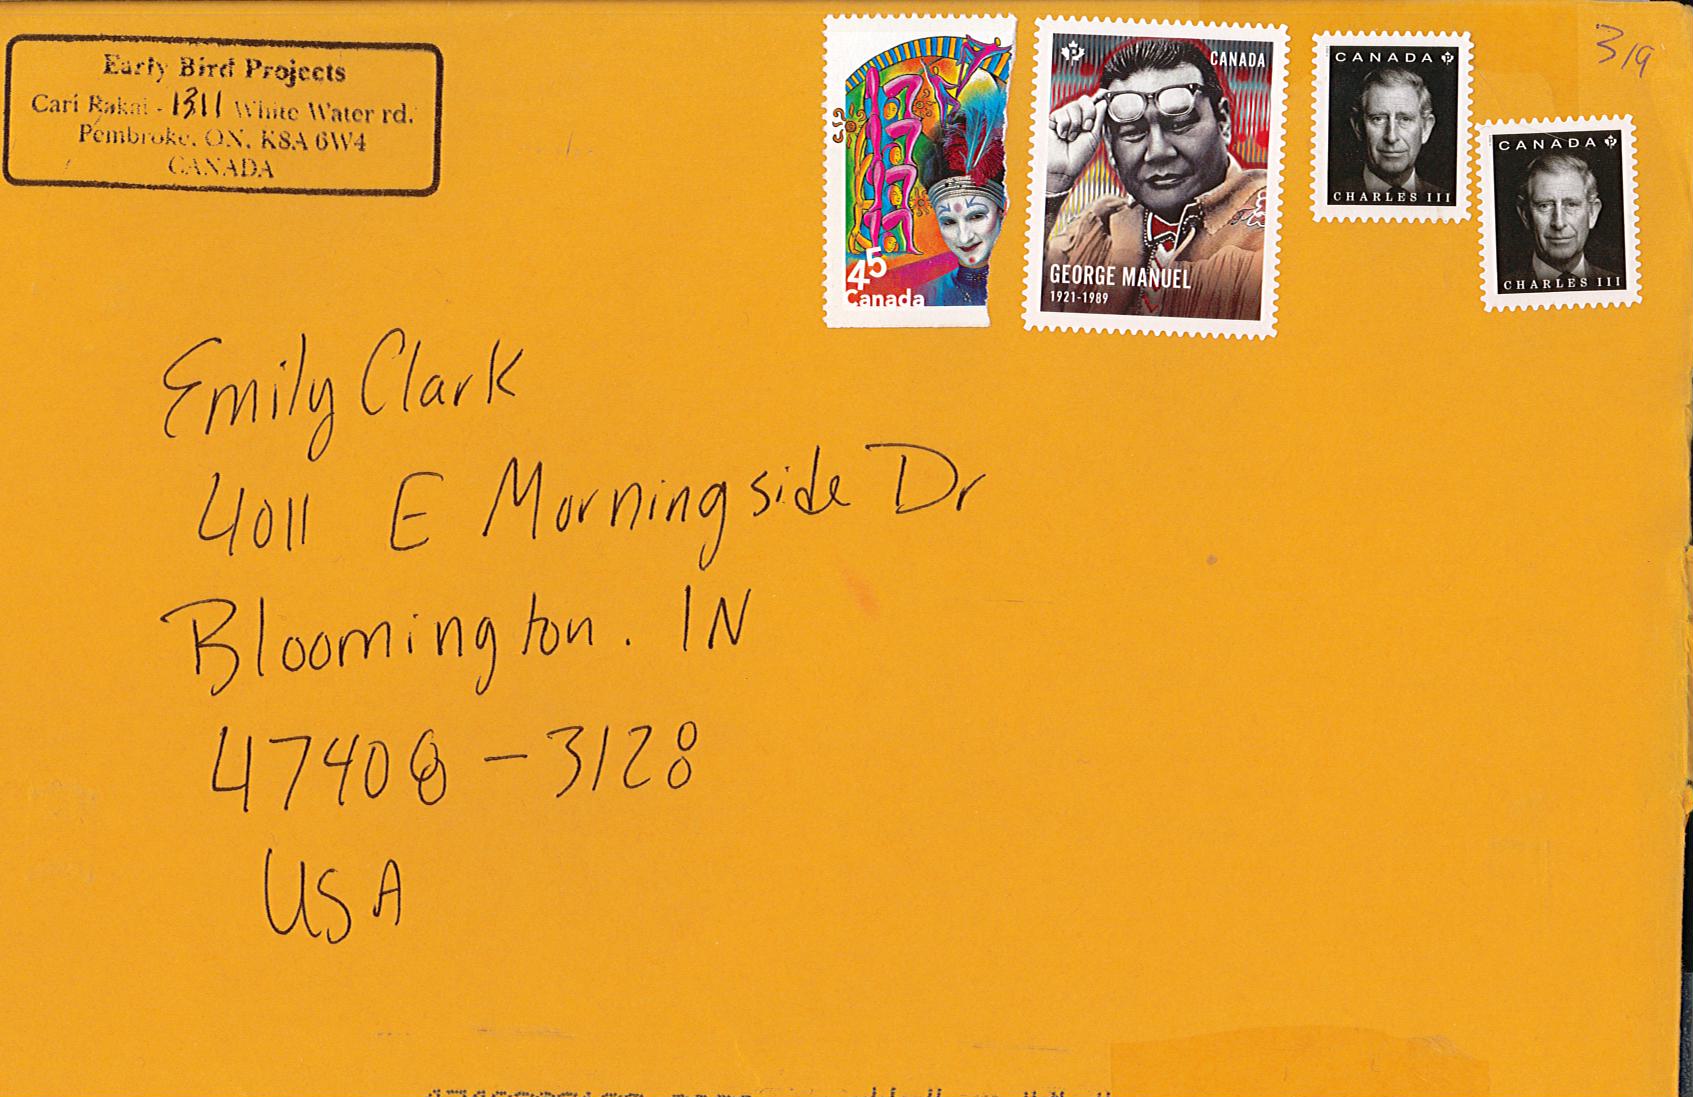 Early Bird Projects
Cari Rakai - 1311 White Water rd.
Pembroke, ON, K8A 6W4
CANADA
45
Canada
P
CANADA
GEORGE MANUEL
1921-1989
CANADA P
CHARLES III
CANADA P
CHARLES III
3/9
Emily Clark
4011 E Morningside Dr
Bloomington. IN
47408-3128
USA